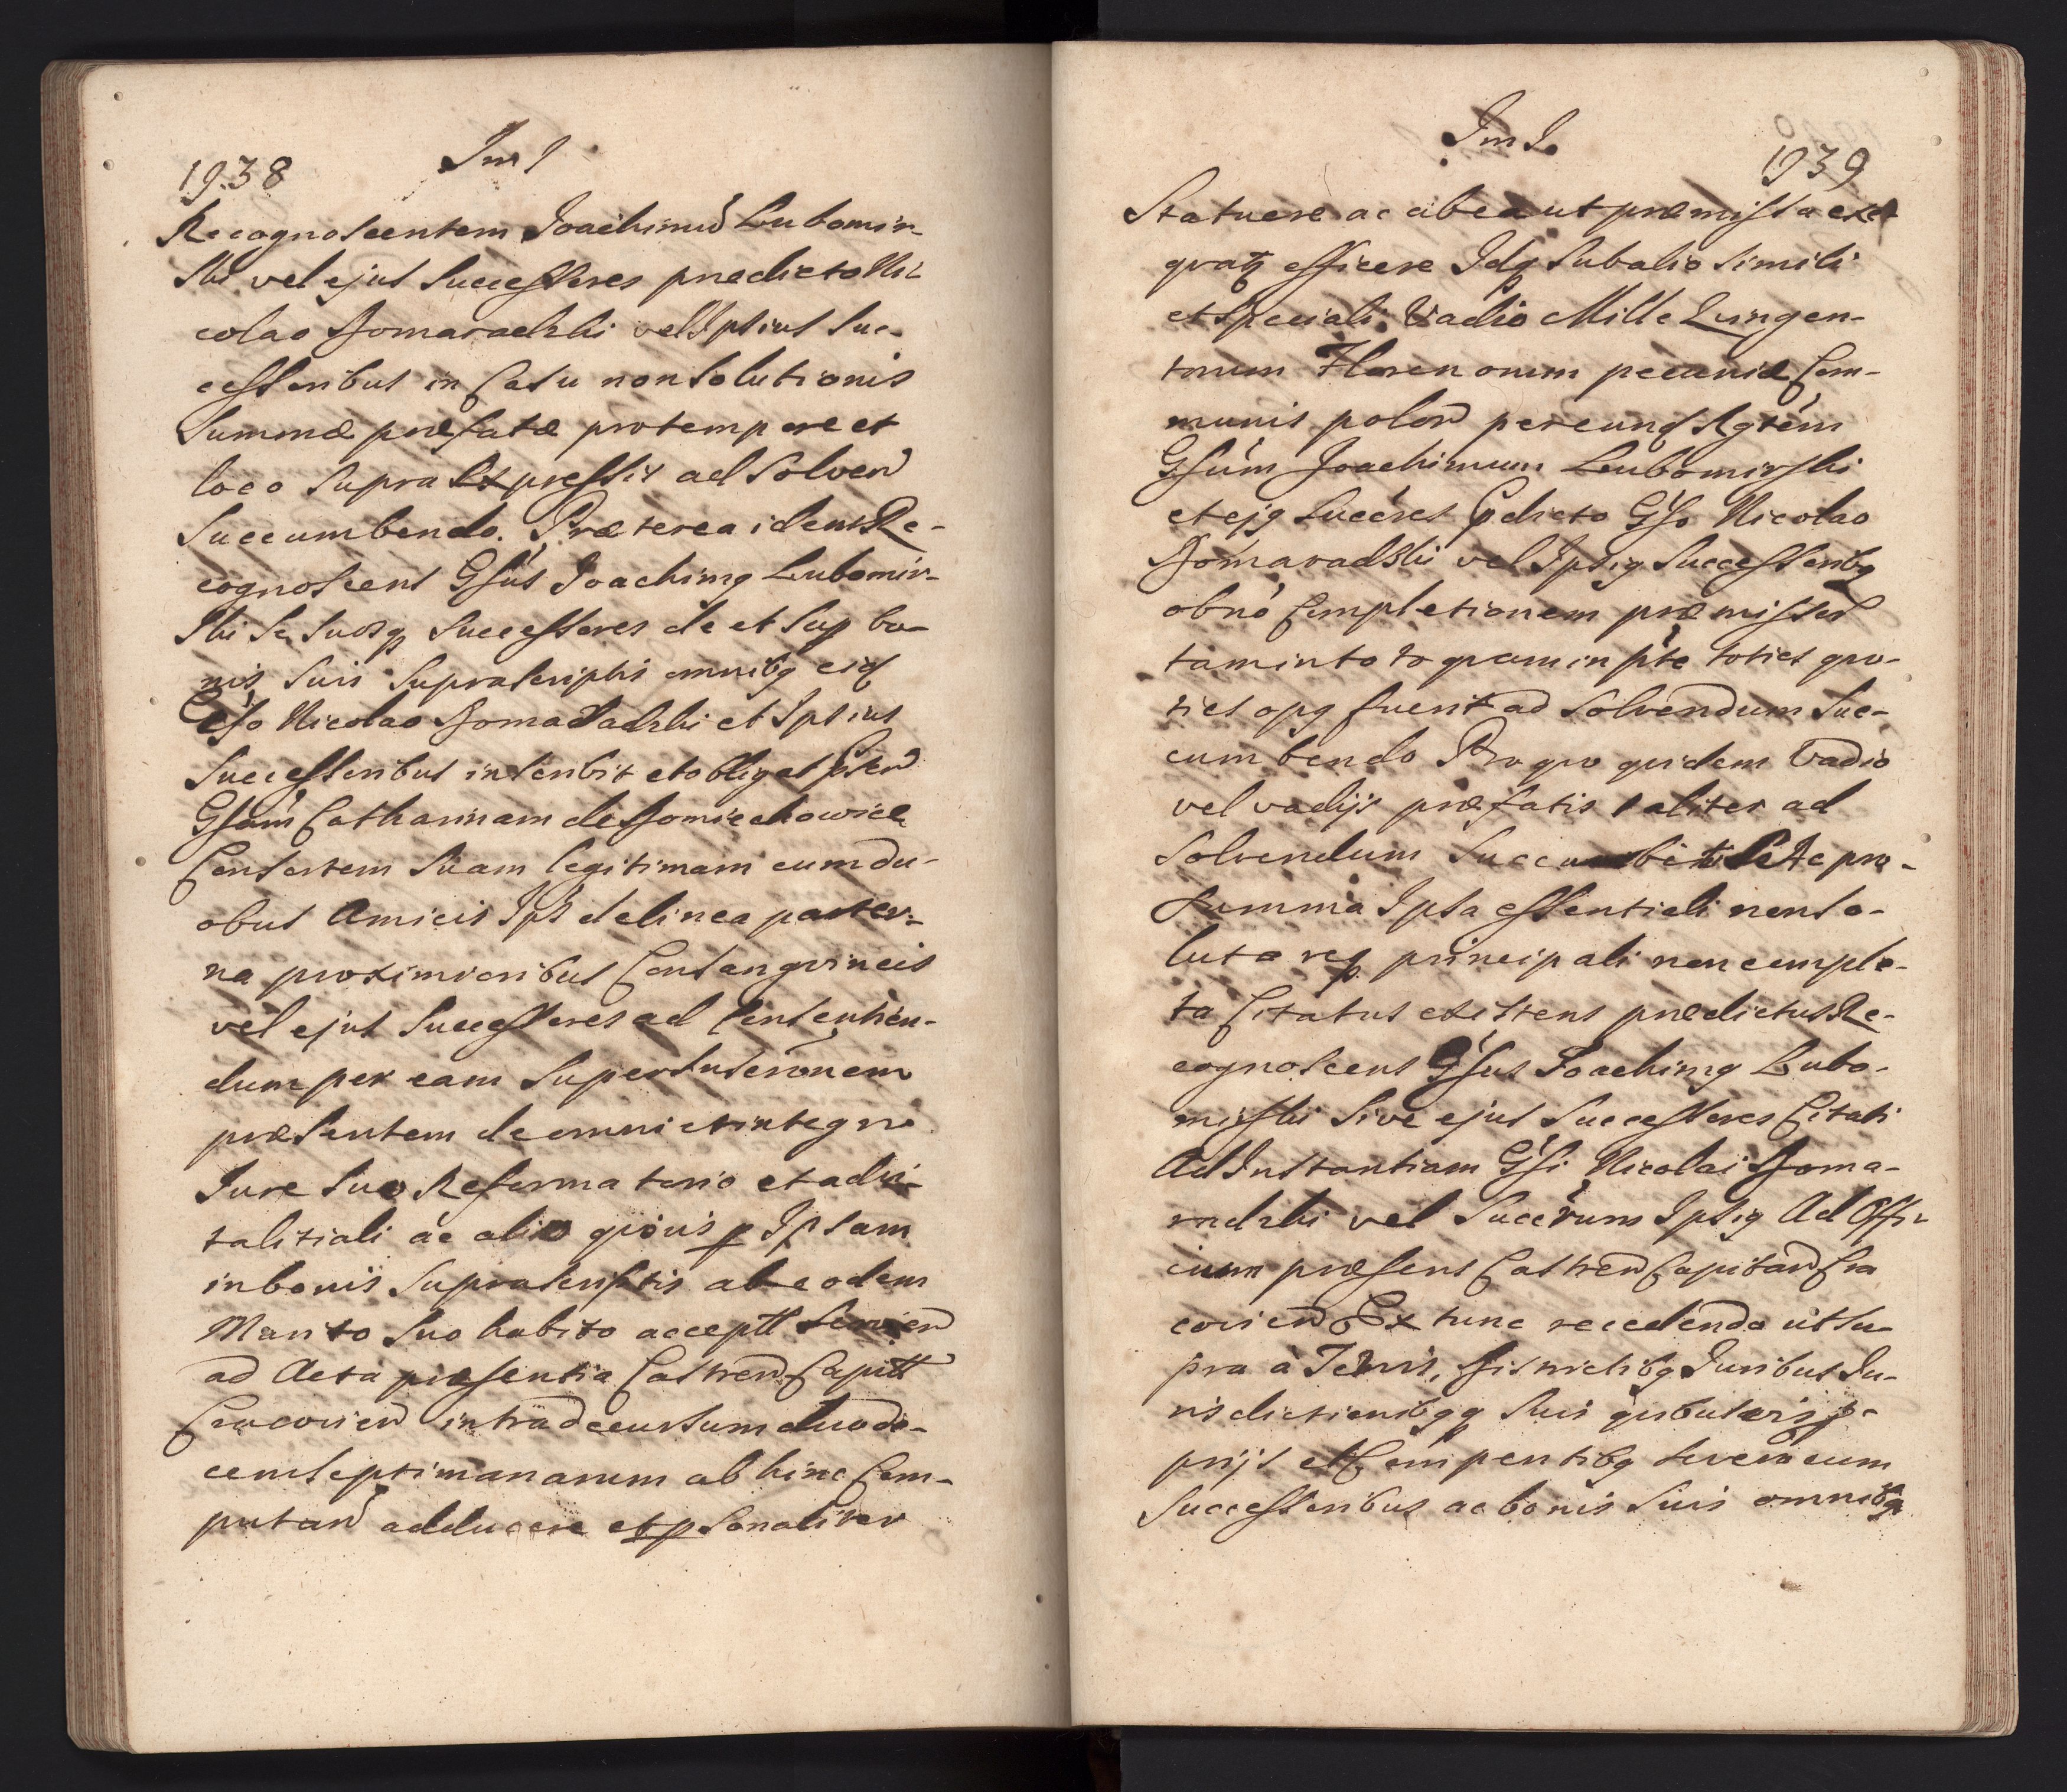 1938
Im I
Recognoscentem Joachimū Lubomir-
ski vel ejus Successores praedicto Ni-
colao Komaradzki vel Ipsius Suc-
cessoribus in Casu non Solutionis
Summae praefatae pro tempore et
loco Supra Expressis ad Solvend
Succumbendo. Praeterea idem Re-
cognoscens Gsus Joachimq Lubomir-
ski Se Suosq Successores de et Sup bo-
nis Suis Suprascriptis omnibq eid
Gso Nicolao Komaradzki et Ipsius
Successoribus inscribit et obligat
Gsam Catharinam de Komiechowice
Consortem Suam legitimam cum du-
obus Amicis Ips de linea pater-
na proximioribus Consangvineis
vel ejus Successores ad Consentien-
dum per eam Super Inscrōnem
praesentem de omni et integro
Jure Suo Reformatorio et advi-
talitiali ac alio qvovis p Ipsam
in bonis Suprascriptis ab eodem
Marito Suo habito
ad Acta praesentia Castren Capitt
Cracovien intra decursum duode-
cem Septimanarum ab hinc Com-
putan adducere et psonaliter
Im I.
1939
Statuere ac ab ea ut praemissa
efficere Idq Sub alio Simili
et Speciali Vadio Mille Qvingen-
torum Florenorum pecuniae Com-
munis polon per eund Rgtem
Gsum Joachimum Lubomirski
et ejq Succres pdicto Gso Nicolao
Komaradzki vel Ipsiq Successoribq
ob nō Completionem praemissor
tam in toto qvam in pte toties qvo-
ties opq fuerit ad Solvendum Suc-
cumbendo Pro qvo qvidem Vadio
vel vadijs praefatis taliter ad
Solvendum pro-
Summa Ipsa essentiali non so-
luta req principali non comple-
ta Citatus existens praedictus Re-
cognoscens Gsus Joachimq Lubo-
mirski Sive ejus Successores Citati
Ad Instantiam Gsi Nicolai Koma-
radzki vel Succrum Ipsiq Ad Offi-
cium praesens Castren Capitan Cra
covien Ex tunc recedendo ut Su-
pra a Terris, Districtibq Juribus Ju-
risdictionibqq Suis qvibusvis p-
prijs et Competentibq
Successoribus ac bonis Suis omnibq